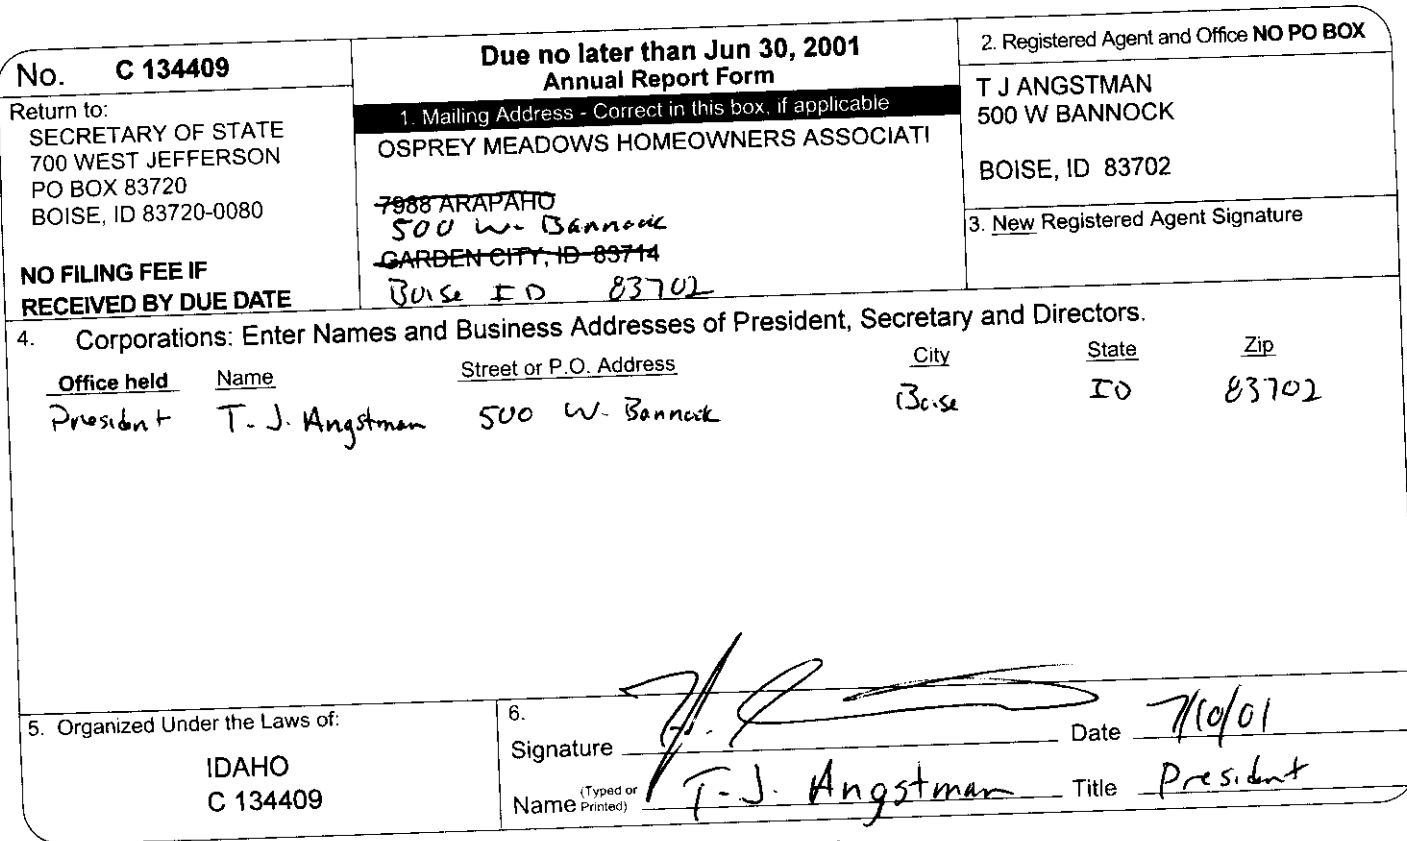 No. C 134409
Return to:
SECRETARY OF STATE
700 WEST JEFFERSON
PO BOX 83720
BOISE, ID 83720-0080
NO FILING FEE IF
RECEIVED BY DUE DATE
Due no later than Jun 30, 2001
Annual Report Form
1. Mailing Address - Correct in this box, if applicable
OSPREY MEADOWS HOMEOWNERS ASSOCIATI
7988 ARAPAHO
500 W. Bannock
GARDEN CITY, ID 83714
Boise ID 83702
2. Registered Agent and Office NO PO BOX
T J ANGSTMAN
500 W BANNOCK
BOISE, ID 83702
3. New Registered Agent Signature
4. Corporations: Enter Names and Business Addresses of President, Secretary and Directors.
Office held Name Street or P.O. Address City State Zip
President T. J. Angstman 500 W. Bannock Boise ID 83702
5. Organized Under the Laws of:
IDAHO
C 134409
6.
Signature Date 7/10/01
Name (Typed or Printed) T.J. Angstman Title President